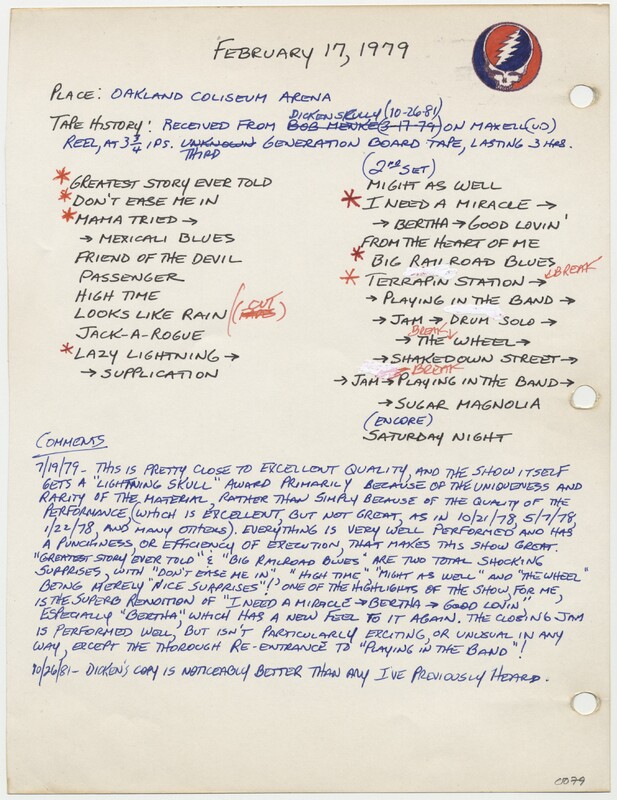 FEBRUARY 17, 1979
PLACE: OAKLAND COLISEUM ARENA
DICKEN SCULLY (10-26-81)
TAPE HISTORY: RECEIVED FROM BOB MENKE (3-17-79) ON MAXELL (UD)
REEL, AT 3 3/4 IPS. UNKNOWN GENERATION BOARD TAPE, LASTING 3 HRS.
THIRD
* GREATEST STORY EVER TOLD
* DON'T EASE ME IN
* MAMA TRIED →
→ MEXICALI BLUES
FRIEND OF THE DEVIL
PASSENGER
HIGH TIME
LOOKS LIKE RAIN (CUT)
JACK-A-ROGUE
* LAZY LIGHTNING →
→ SUPPLICATION
(2nd SET)
MIGHT AS WELL
* I NEED A MIRACLE →
→ BERTHA → GOOD LOVIN'
FROM THE HEART OF ME
* BIG RAILROAD BLUES
* TERRAPIN STATION → ↓BREAK
→ PLAYING IN THE BAND →
→ JAM → DRUM SOLO →
BREAK ↓
→ THE WHEEL →
→ SHAKEDOWN STREET →
BREAK
→ JAM → PLAYING IN THE BAND →
→ SUGAR MAGNOLIA
(ENCORE)
SATURDAY NIGHT
COMMENTS
7/19/79- THIS IS PRETTY CLOSE TO EXCELLENT QUALITY, AND THE SHOW ITSELF
GETS A "LIGHTNING SKULL" AWARD PRIMARILY BECAUSE OF THE UNIQUENESS AND
RARITY OF THE MATERIAL, RATHER THAN SIMPLY BECAUSE OF THE QUALITY OF THE
PERFORMANCE (WHICH IS EXCELLENT, BUT NOT GREAT, AS IN 10/21/78, 5/7/78,
1/22/78, AND MANY OTHERS). EVERYTHING IS VERY WELL PERFORMED AND HAS
A PUNCHINESS, OR EFFICIENCY OF EXECUTION, THAT MAKES THIS SHOW GREAT.
"GREATEST STORY EVER TOLD" & "BIG RAILROAD BLUES" ARE TWO TOTAL SHOCKING
SURPRISES, WITH "DON'T EASE ME IN" "HIGH TIME" "MIGHT AS WELL" AND "THE WHEEL"
BEING MERELY "NICE SURPRISES"! ONE OF THE HIGHLIGHTS OF THE SHOW, FOR ME,
IS THE SUPERB RENDITION OF "I NEED A MIRACLE → BERTHA → GOOD LOVIN',"
ESPECIALLY "BERTHA," WHICH HAS A NEW FEEL TO IT AGAIN. THE CLOSING JAM
IS PERFORMED WELL, BUT ISN'T PARTICULARLY EXCITING, OR UNUSUAL IN ANY
WAY, EXCEPT THE THOROUGH RE-ENTRANCE TO "PLAYING IN THE BAND"!
10/26/81- DICKEN'S COPY IS NOTICEABLY BETTER THAN ANY I'VE PREVIOUSLY HEARD.